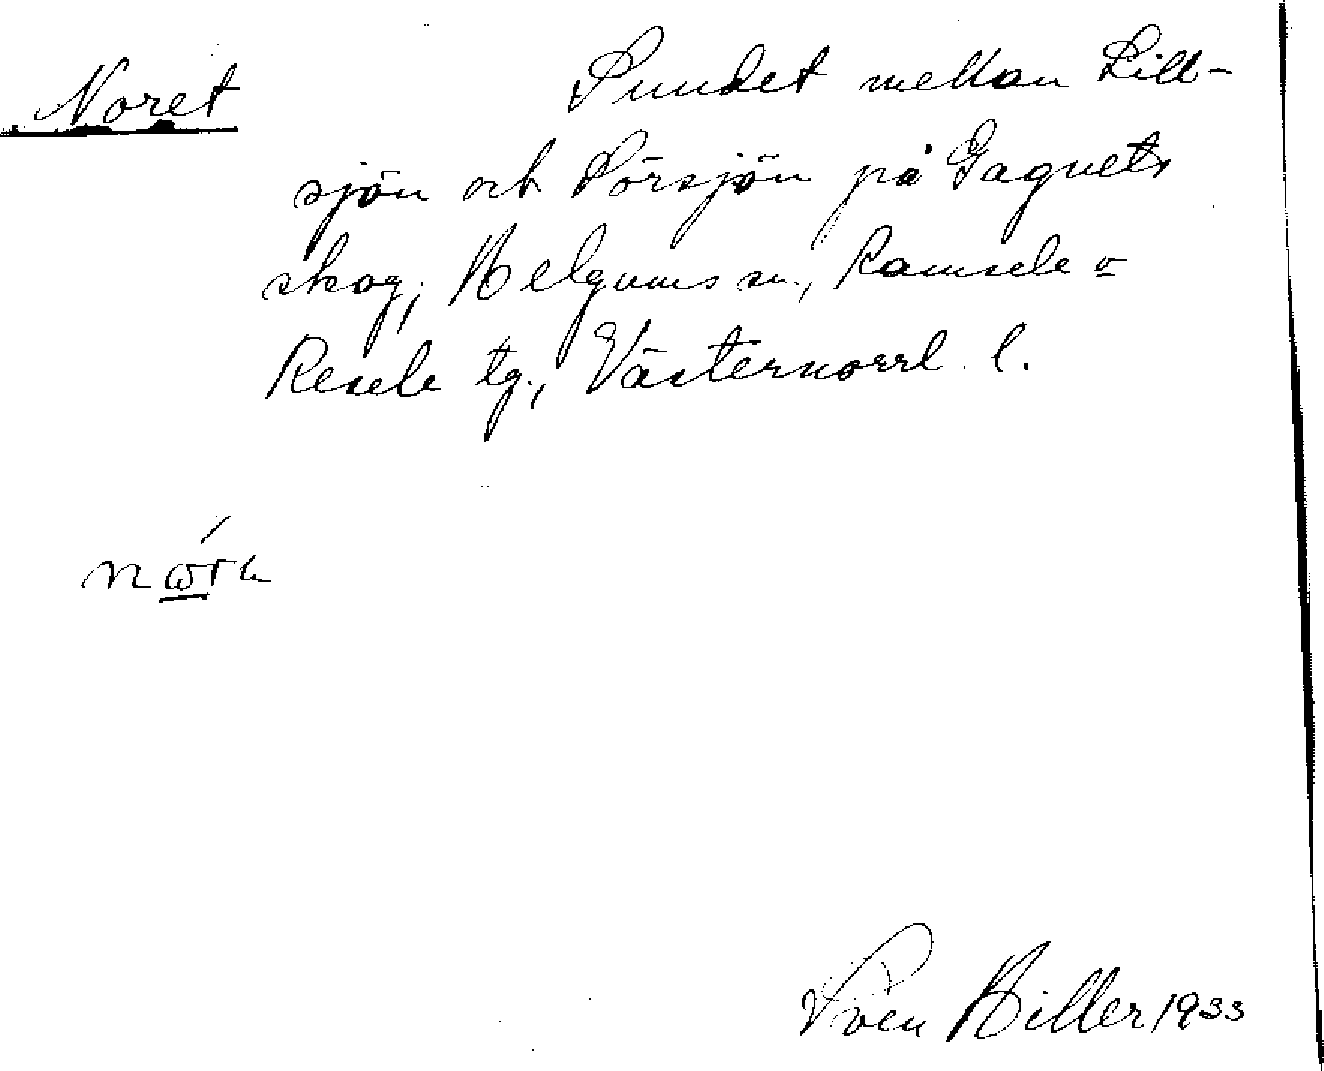 Noret
Sundet mellan Lill-
sjön och Sörsjön på Gagnets
skog, Helgums sn., Ramsele o
Resele tg., Västernorrl. l.
Sven Hiller 1933